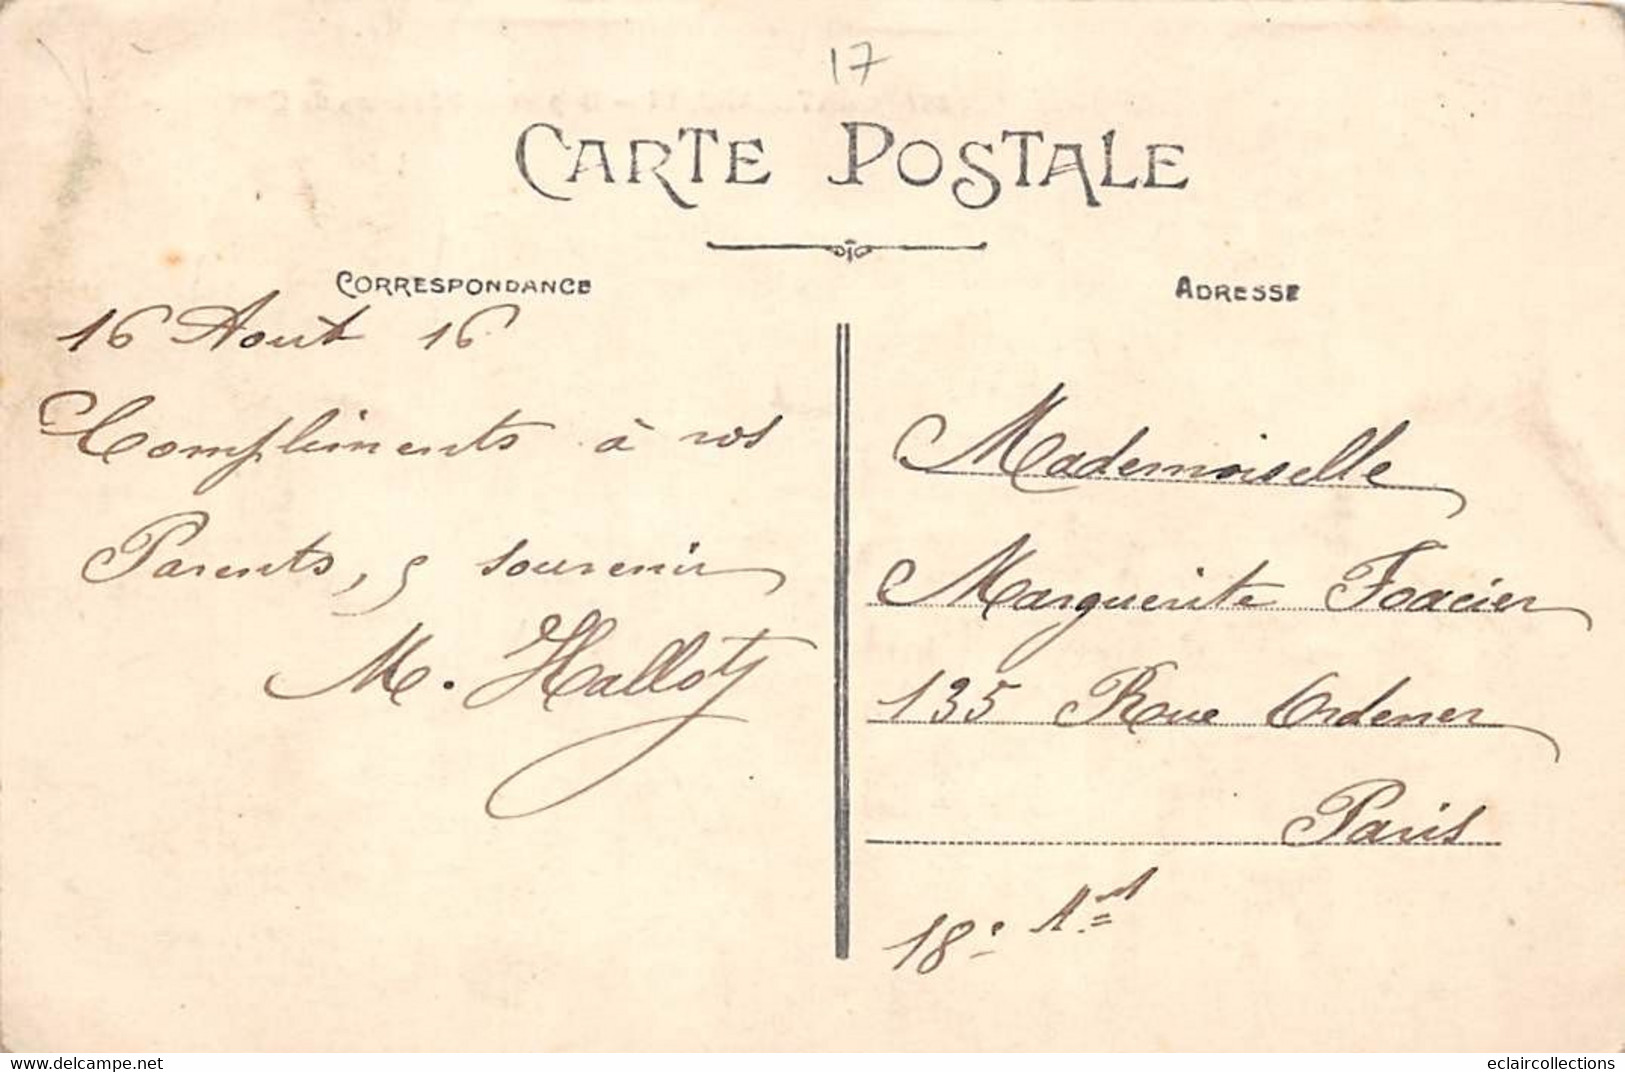 17
CARTE POSTALE
CORRESPONDANCE
ADRESSE
16 Aout 16
Compliments à vos
Parents, & souvenir
M. Hallot
Mademoiselle
Marguerite Foacier
135 Rue Ordener
Paris
18e Art
www.delcampe.net
eclaircollections